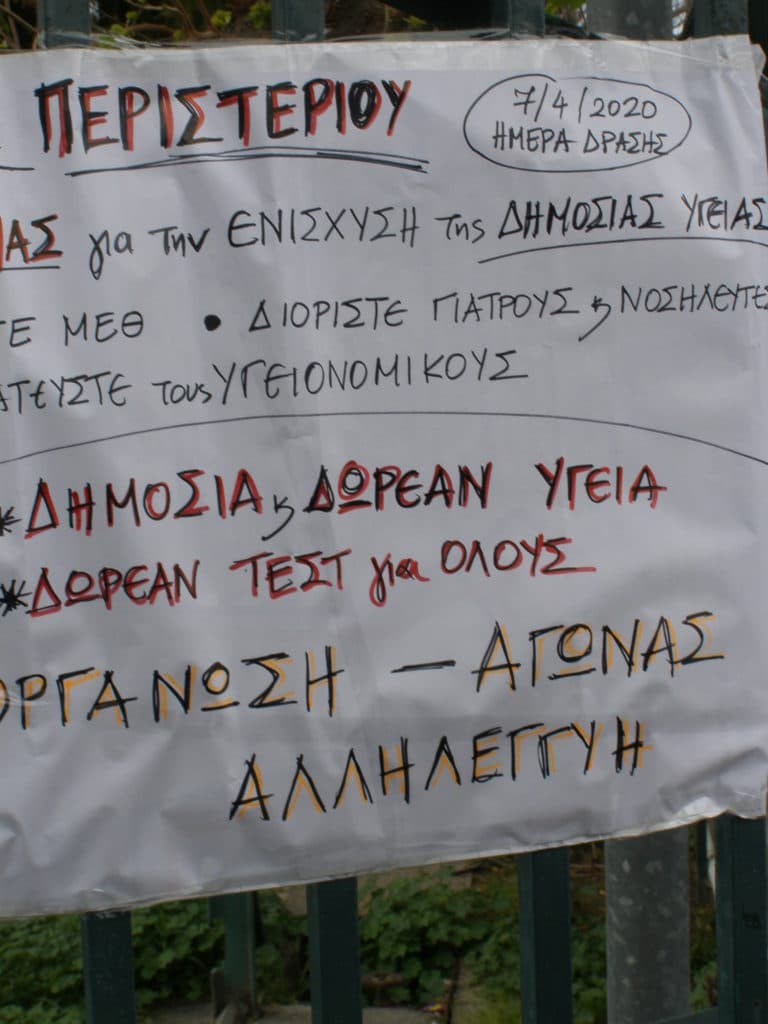 ΠΕΡΙΣΤΕΡΙΟΥ
7/4/2020
ΗΜΕΡΑ ΔΡΑΣΗΣ
ΑΣ για την ΕΝΙΣΧΥΣΗ της ΔΗΜΟΣΙΑΣ ΥΓΕΙΑΣ
ΤΕ ΜΕΘ • ΔΙΟΡΙΣΤΕ ΓΙΑΤΡΟΥΣ ϗ ΝΟΣΗΛΕΥΤΕΣ
ΑΤΕΥΣΤΕ τους ΥΓΕΙΟΝΟΜΙΚΟΥΣ
*ΔΗΜΟΣΙΑ ϗ ΔΩΡΕΑΝ ΥΓΕΙΑ
*ΔΩΡΕΑΝ ΤΕΣΤ για ΟΛΟΥΣ
ΟΡΓΑΝΩΣΗ — ΑΓΩΝΑΣ
ΑΛΛΗΛΕΓΓΥΗ